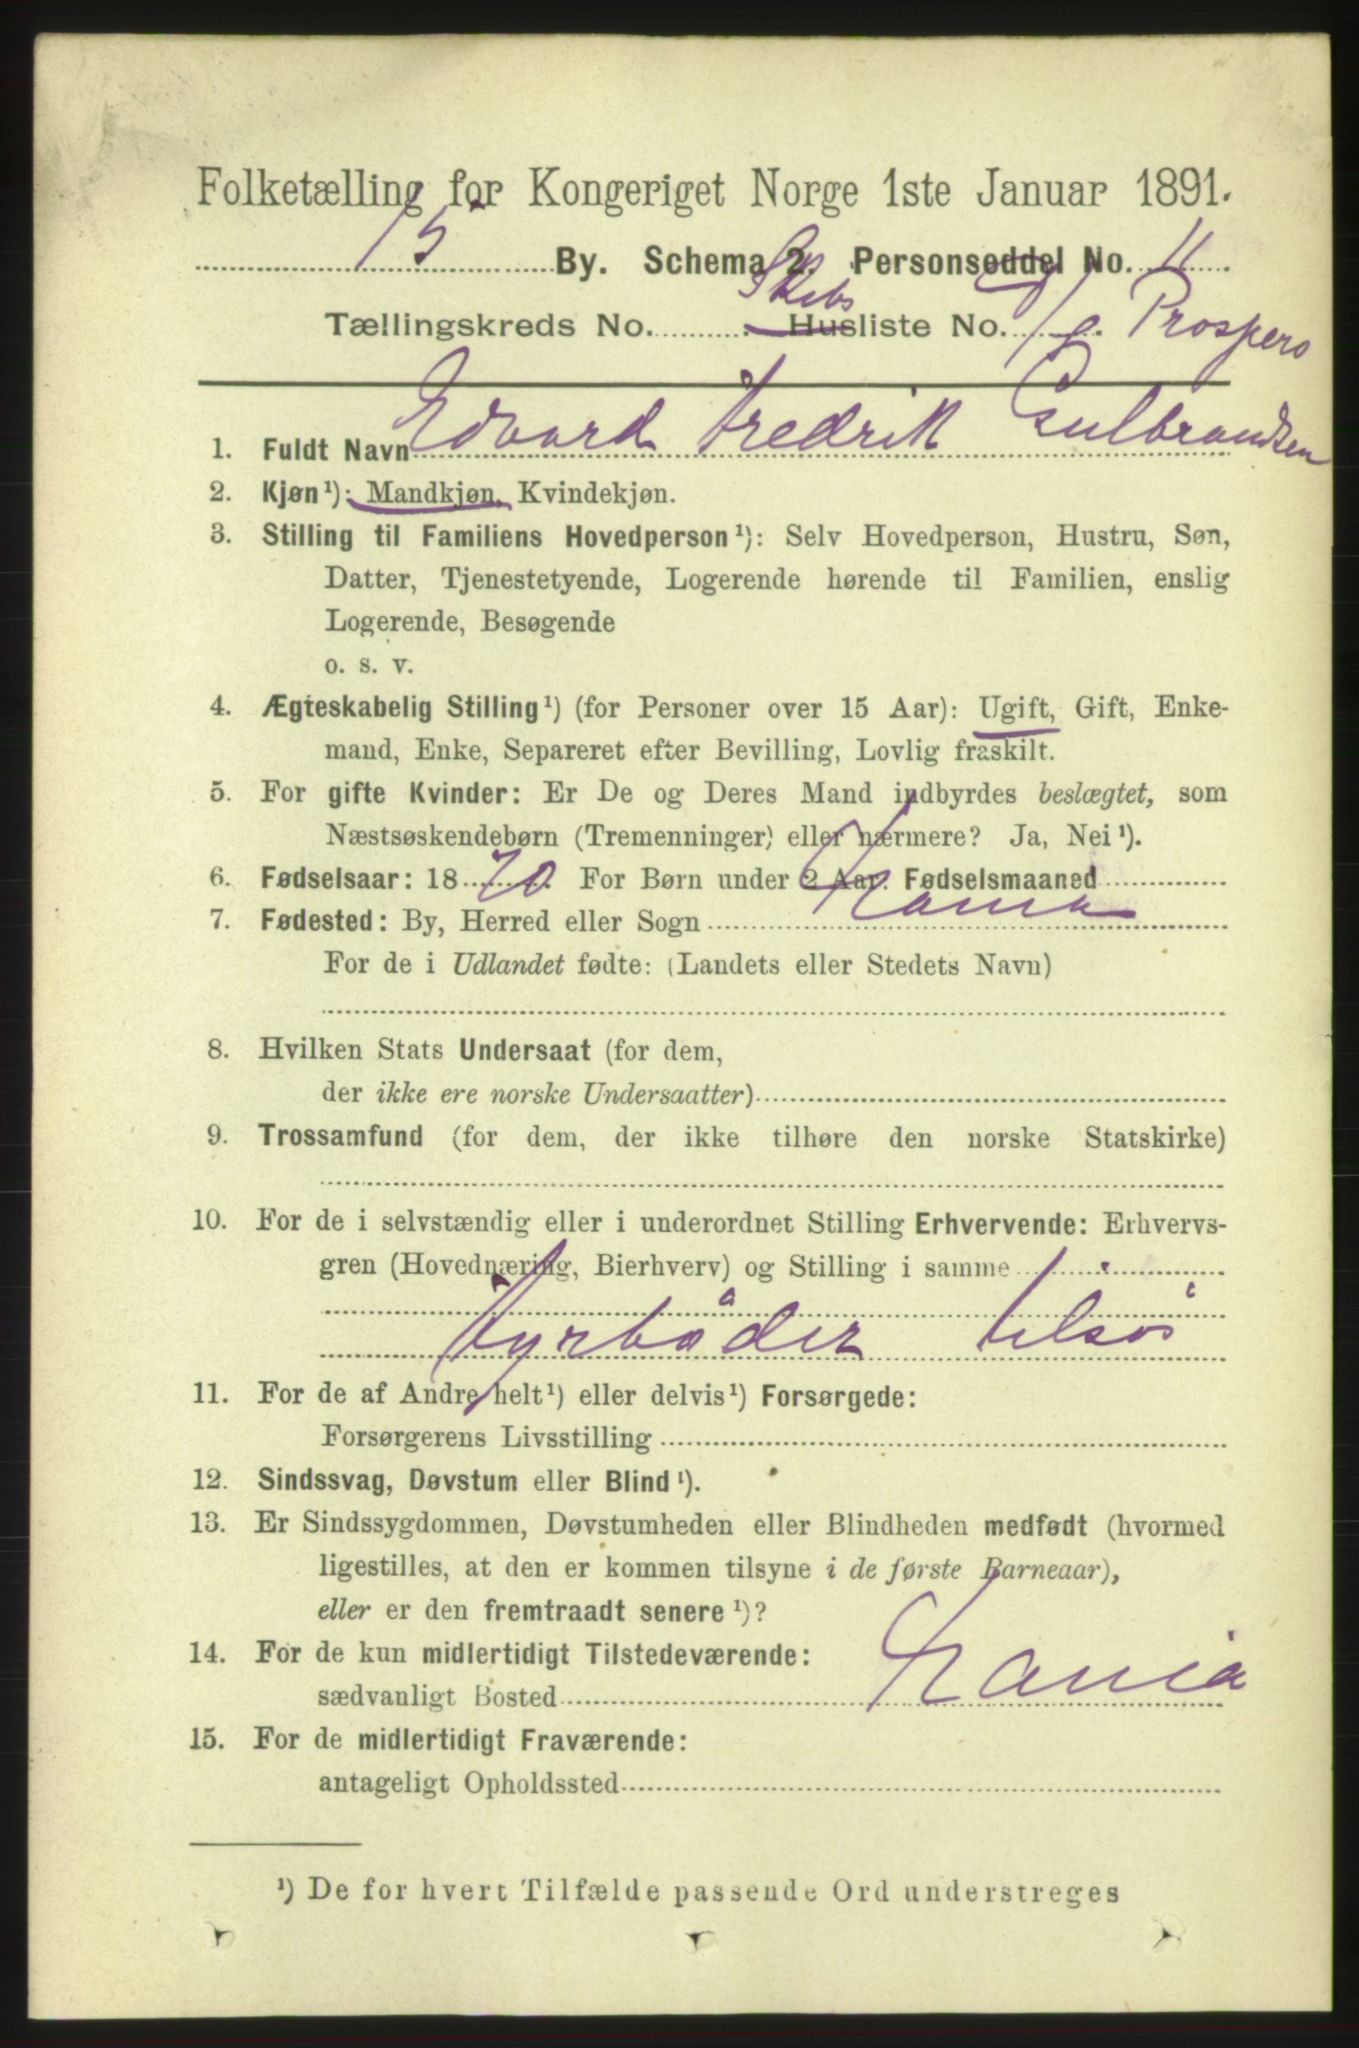 Folketælling for Kongeriget Norge 1ste Januar 1891.
15 By. Schema 2. Personseddel No. 11
Tællingskreds No. Skibs Husliste No. Prospero
1. Fuldt Navn Edvard Fredrik Gulbrandsen
2. Kjøn¹): Mandkjøn, Kvindekjøn.
3. Stilling til Familiens Hovedperson¹): Selv Hovedperson, Hustru, Søn,
Datter, Tjenestetyende, Logerende hørende til Familien, enslig
Logerende, Besøgende
o. s. v.
4. Ægteskabelig Stilling¹) (for Personer over 15 Aar): Ugift, Gift, Enke-
mand, Enke, Separeret efter Bevilling, Lovlig fraskilt.
5. For gifte Kvinder: Er De og Deres Mand indbyrdes beslægtet, som
Næstsøskendebørn (Tremenninger) eller nærmere? Ja, Nei¹).
6. Fødselsaar: 1870. For Børn under 2 Aar. Fødselsmaaned
7. Fødested: By, Herred eller Sogn Xania
For de i Udlandet fødte: (Landets eller Stedets Navn)
8. Hvilken Stats Undersaat (for dem,
der ikke ere norske Undersaatter)
9. Trossamfund (for dem, der ikke tilhøre den norske Statskirke)
10. For de i selvstændig eller i underordnet Stilling Erhvervende: Erhvervs-
gren (Hovednæring, Bierhverv) og Stilling i samme
Fyrbøder tilsøs
11. For de af Andre helt¹) eller delvis¹) Forsørgede:
Forsørgerens Livsstilling
12. Sindssvag, Døvstum eller Blind¹).
13. Er Sindssygdommen, Døvstumheden eller Blindheden medfødt (hvormed
ligestilles, at den er kommen tilsyne i de første Barneaar),
eller er den fremtraadt senere¹)?
14. For de kun midlertidigt Tilstedeværende:
sædvanligt Bosted Xania
15. For de midlertidigt Fraværende:
antageligt Opholdssted
¹) De for hvert Tilfælde passende Ord understreges